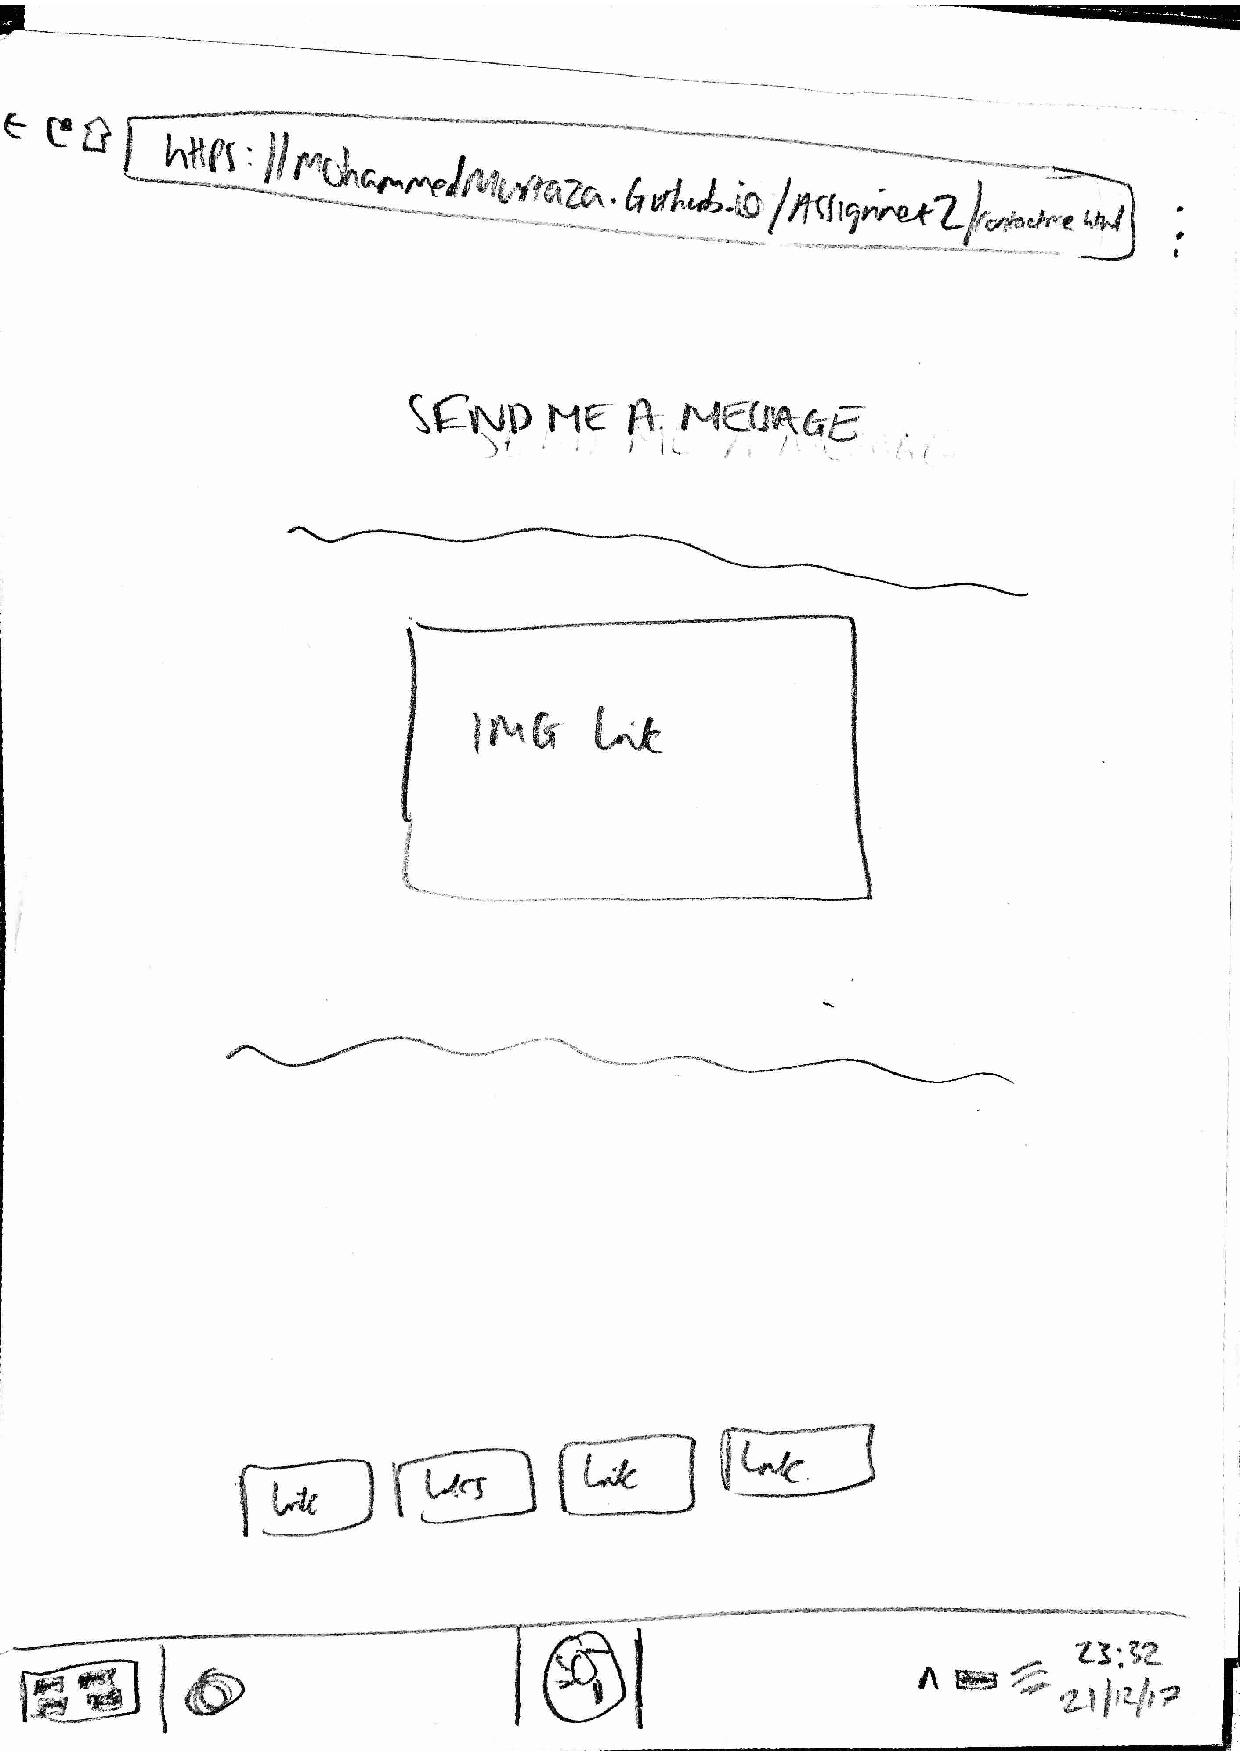 https://MohammedMurtaza.Github.io/Assignmet2/contactme.html
SEND ME A MESSAGE
IMG Link
Link Links Link Link
23:32
21/12/17